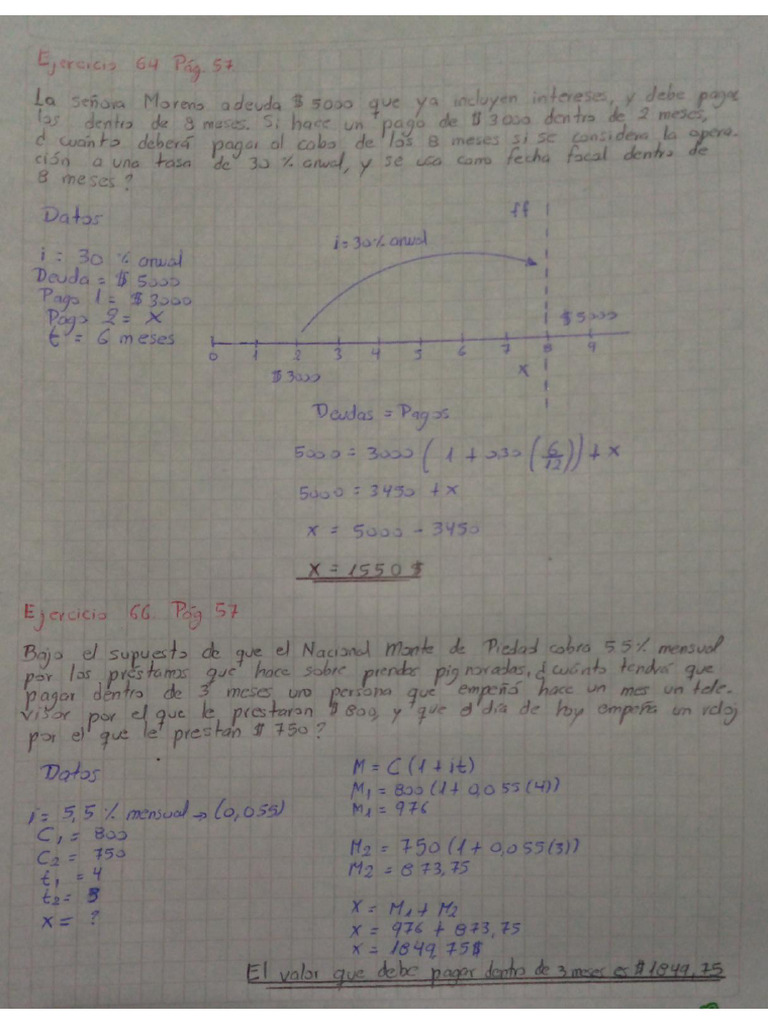 Ejercicio 64 Pág. 57
La señora Moreno adeuda $ 5000 que ya incluyen intereses, y debe pagar
los dentro de 8 meses. Si hace un pago de $ 3000 dentro de 2 meses,
¿ cuánto deberá pagar al cabo de los 8 meses si se considera la opera-
ción a una tasa de 30 % anual, y se usa como fecha focal dentro de
8 meses?
Datos
i = 30 % anual
Deuda = $ 5000
Pago 1 = $ 3000
Pago 2 = x
t = 6 meses
ff
i = 30% anual
$ 5000
0 1 2 3 4 5 6 7 8 9
$ 3000
x
Deudas = Pagos
5000 = 3000 ( 1 + 0,30 ( 6/12 )) + x
5000 = 3450 + x
x = 5000 - 3450
x = 1550 $
Ejercicio 66. Pág 57
Bajo el supuesto de que el Nacional Monte de Piedad cobra 5.5% mensual
por los préstamos que hace sobre prendas pignoradas, ¿ cuánto tendrá que
pagar dentro de 3 meses una persona que empeñó hace un mes un tele-
visor por el que le prestaron $ 800, y que el día de hoy empeña un reloj
por el que le prestan $ 750?
Datos
i = 5,5 % mensual → (0,055)
C1 = 800
C2 = 750
t1 = 4
t2 = 3
x = ?
M = C (1 + it)
M1 = 800 (1 + 0,055 (4))
M1 = 976
M2 = 750 (1 + 0,055 (3))
M2 = 873,75
x = M1 + M2
x = 976 + 873,75
x = 1849,75$
El valor que debe pagar dentro de 3 meses es $ 1849,75